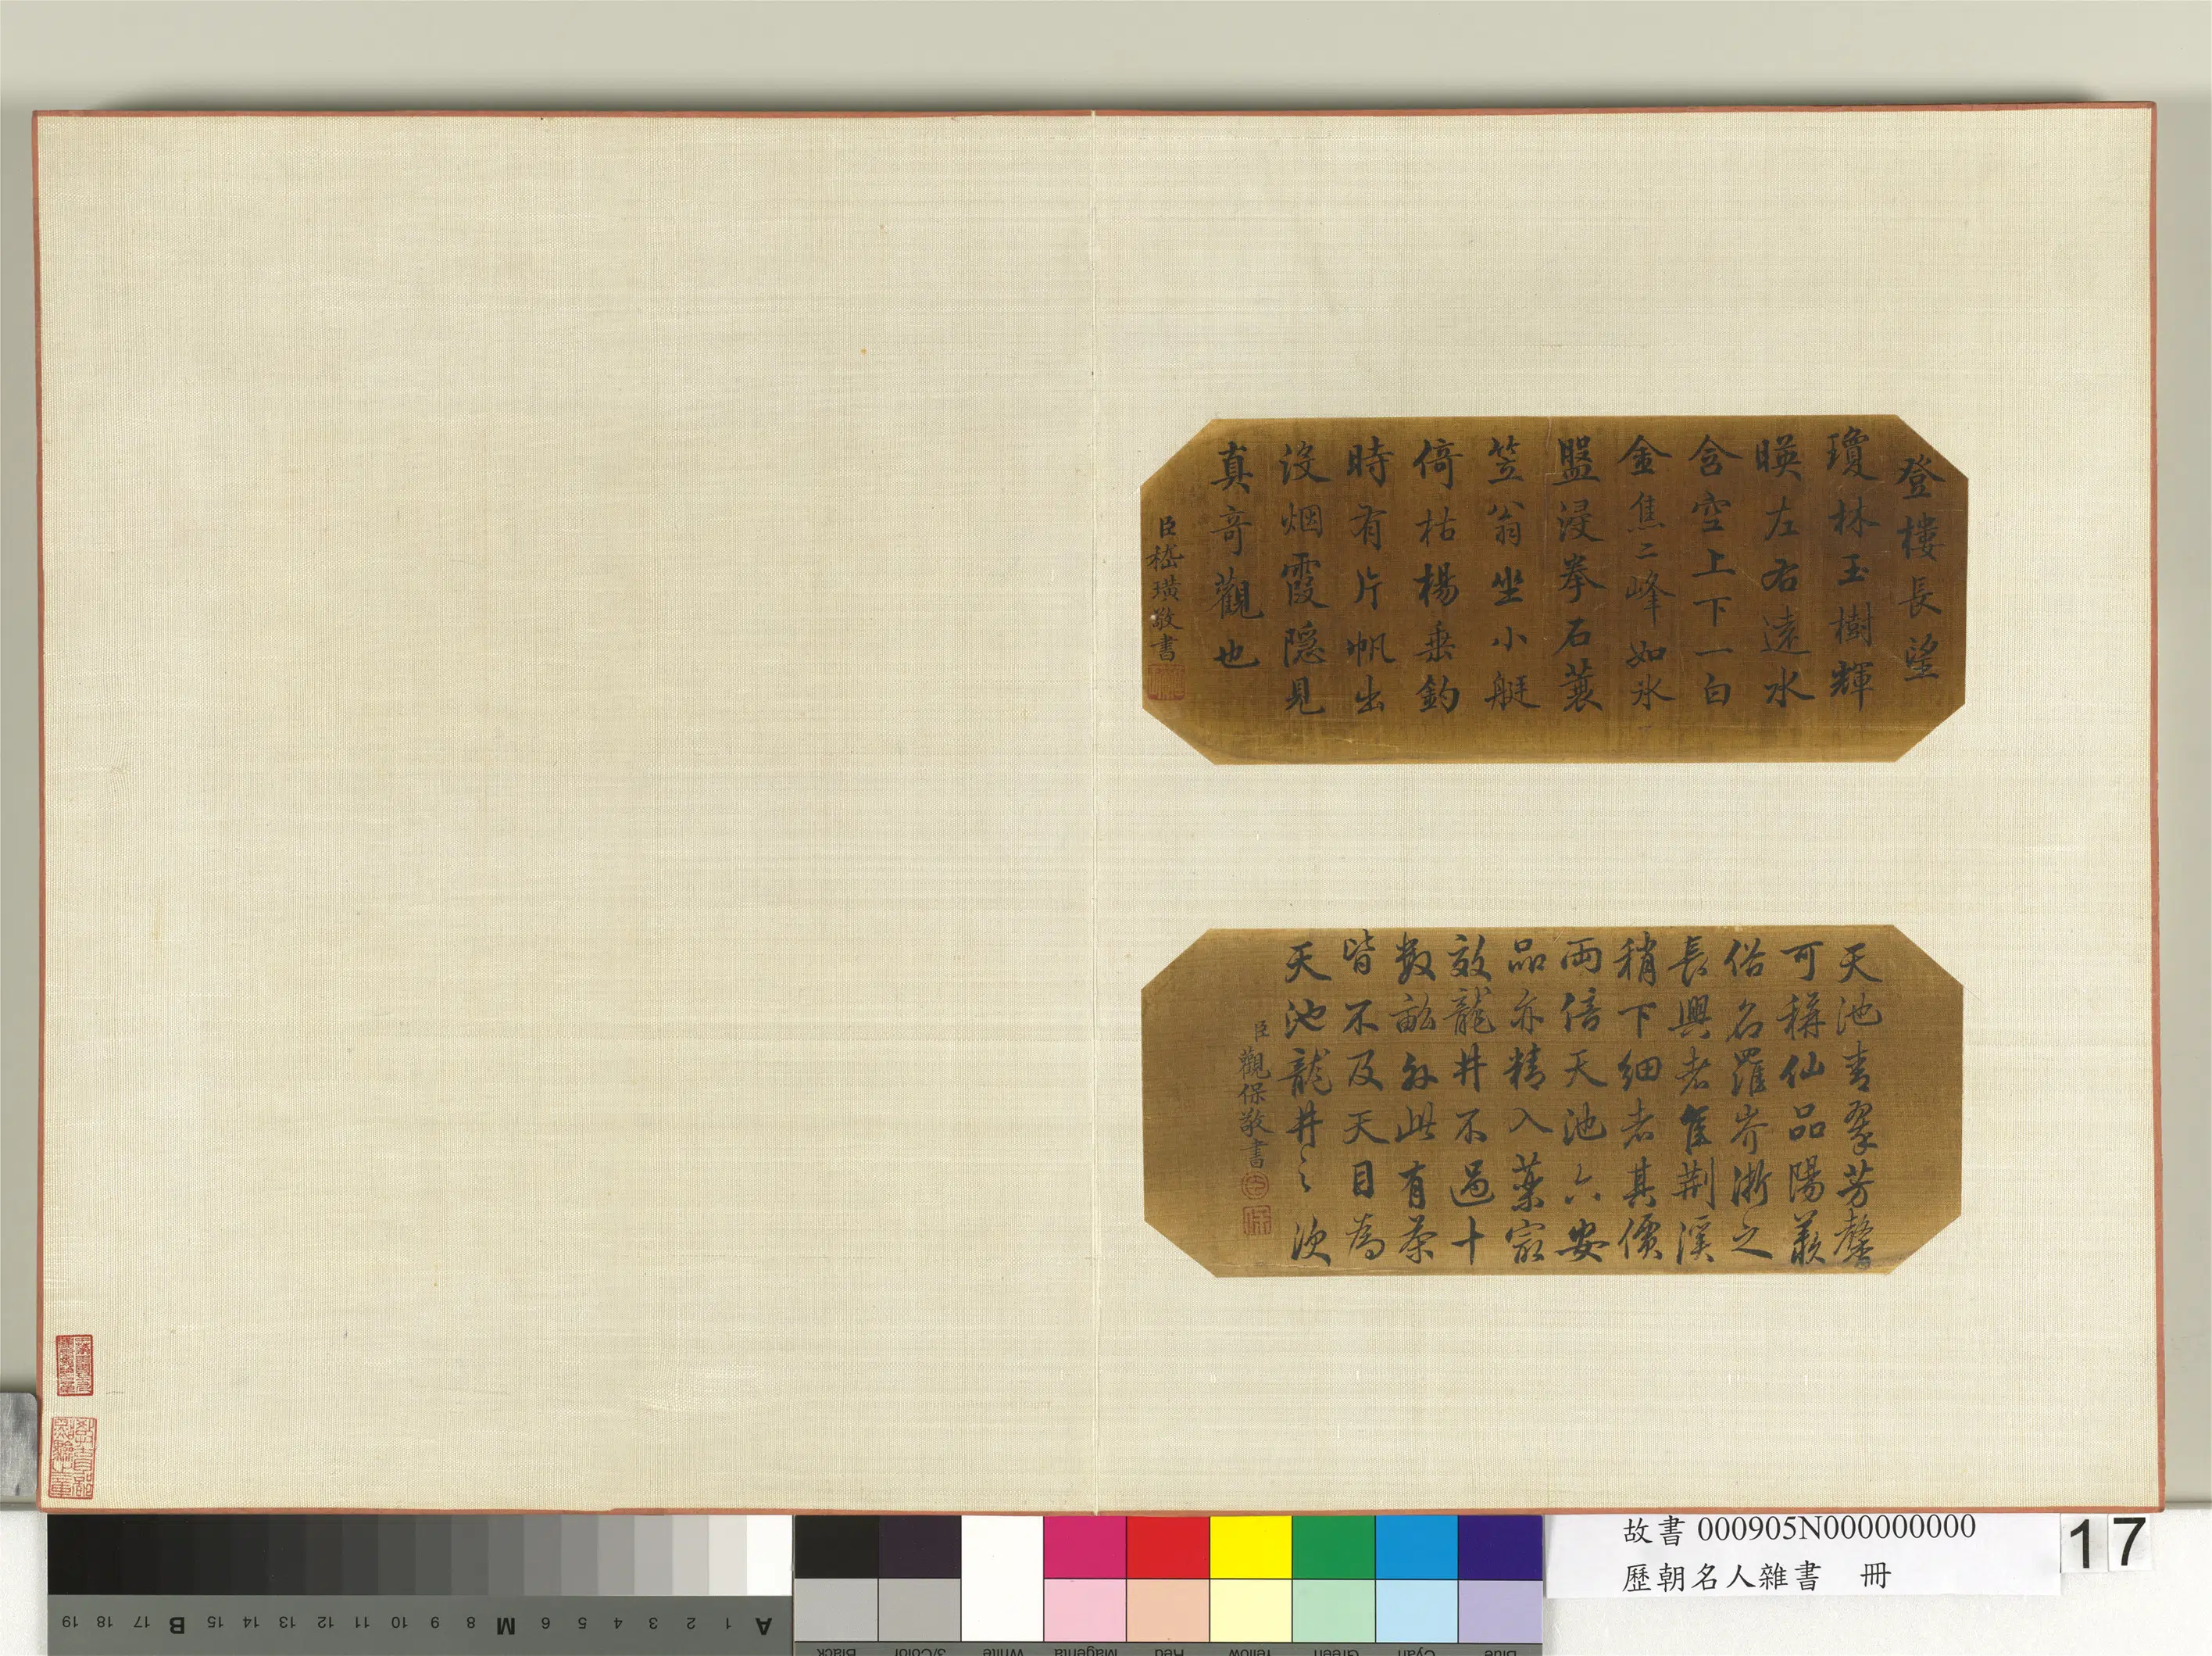 登樓長望
瓊林玉樹輝
暎左右遠水
含空上下一白
金焦二峰如氷
盤浸拳石蓑
笠翁坐小艇
倚枯楊垂釣
時有片帆出
沒烟霞隱見
真奇觀也
臣嵇璜敬書
天池青翠芳馨
可稱仙品陽羨
俗名羅岕浙之
長興者隹荆溪
稍下細者其價
兩倍天池六安
品亦精入藥宻
效龍井不過十
數畝外此有茶
皆不及天目為
天池龍井之次
臣觀保敬書
故書 000905N000000000
歷朝名人雜書 冊
17
A 1 2 3 4 5 6 M 8 9 10 11 12 13 14 15 B 17 18 19
Blue Cyan Green Yellow Red Magenta White 3/Color Black